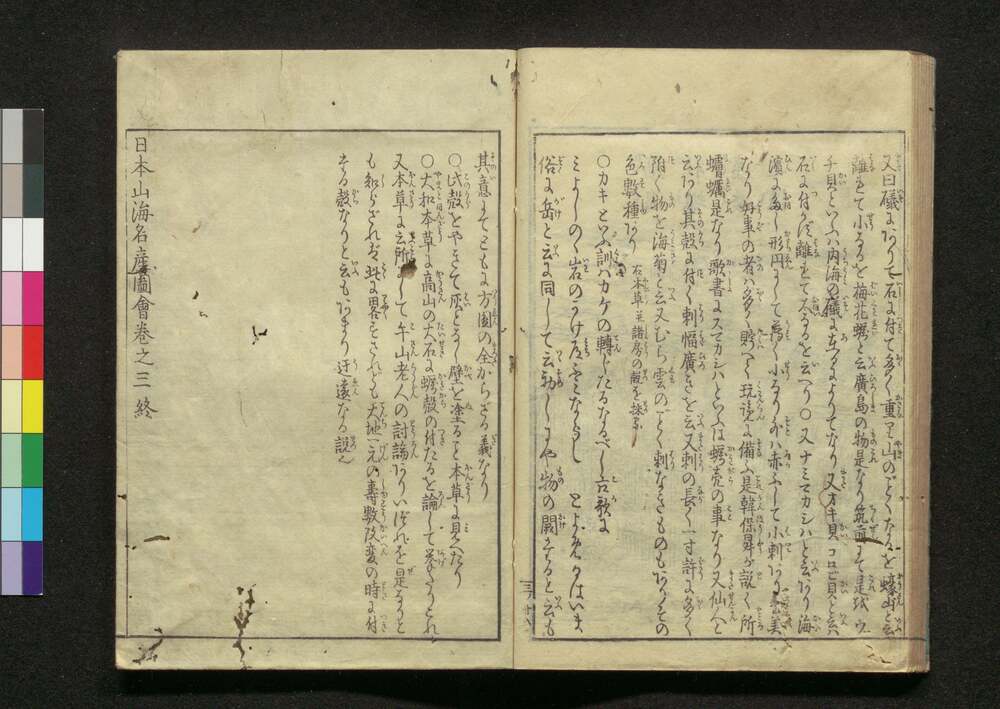 又曰礒にありて石に付て多く重り山のごとくなるを蠔山と云
離れて小なるを梅花蠣と云廣島の物是なり筑前にて是をウ
チ貝といふハ内海の礒によりてなり又オキ貝コロビ貝と云ハ
石に付かず離れて大なるを云へり〇又ナミマカシハと云あり海
濱に多し形円にして薄く小なり外ハ赤ふして小刺あり美
なり好事の者ハ多く貯へて玩覧に備ふ是韓保昇が説く所
蠣是なり歌書にスマカシハといふは蠣売の事なり又仙人と
云あり其殻に付く刺幅廣きを云又刺の長く一寸許に多く
附く物を海菊と云又むら雲のごとく刺なきものもありその
色数種あり
〇カキといふ訓ハカケの轉じたるなるべし古歌に
みよしのゝ岩のかけ道ふみならし とよめるはいま
俗に岳と云に同して云初しにや物の闕たると云も
其意にてともに方圓の全からざる義なり
〇此殻をやきて灰となし壁を塗ること本草に見へたり
〇大和本草に高山の大石に蠣殻の付たるを論して
又本草に云所して午山老人の討論ありいづれを是なりと
も知らざれば此に畧すされども天地一元の壽数改変の時に付
たる殻なりと云もあまり迂遠なる説也
日本山海名産圖會巻之三 終